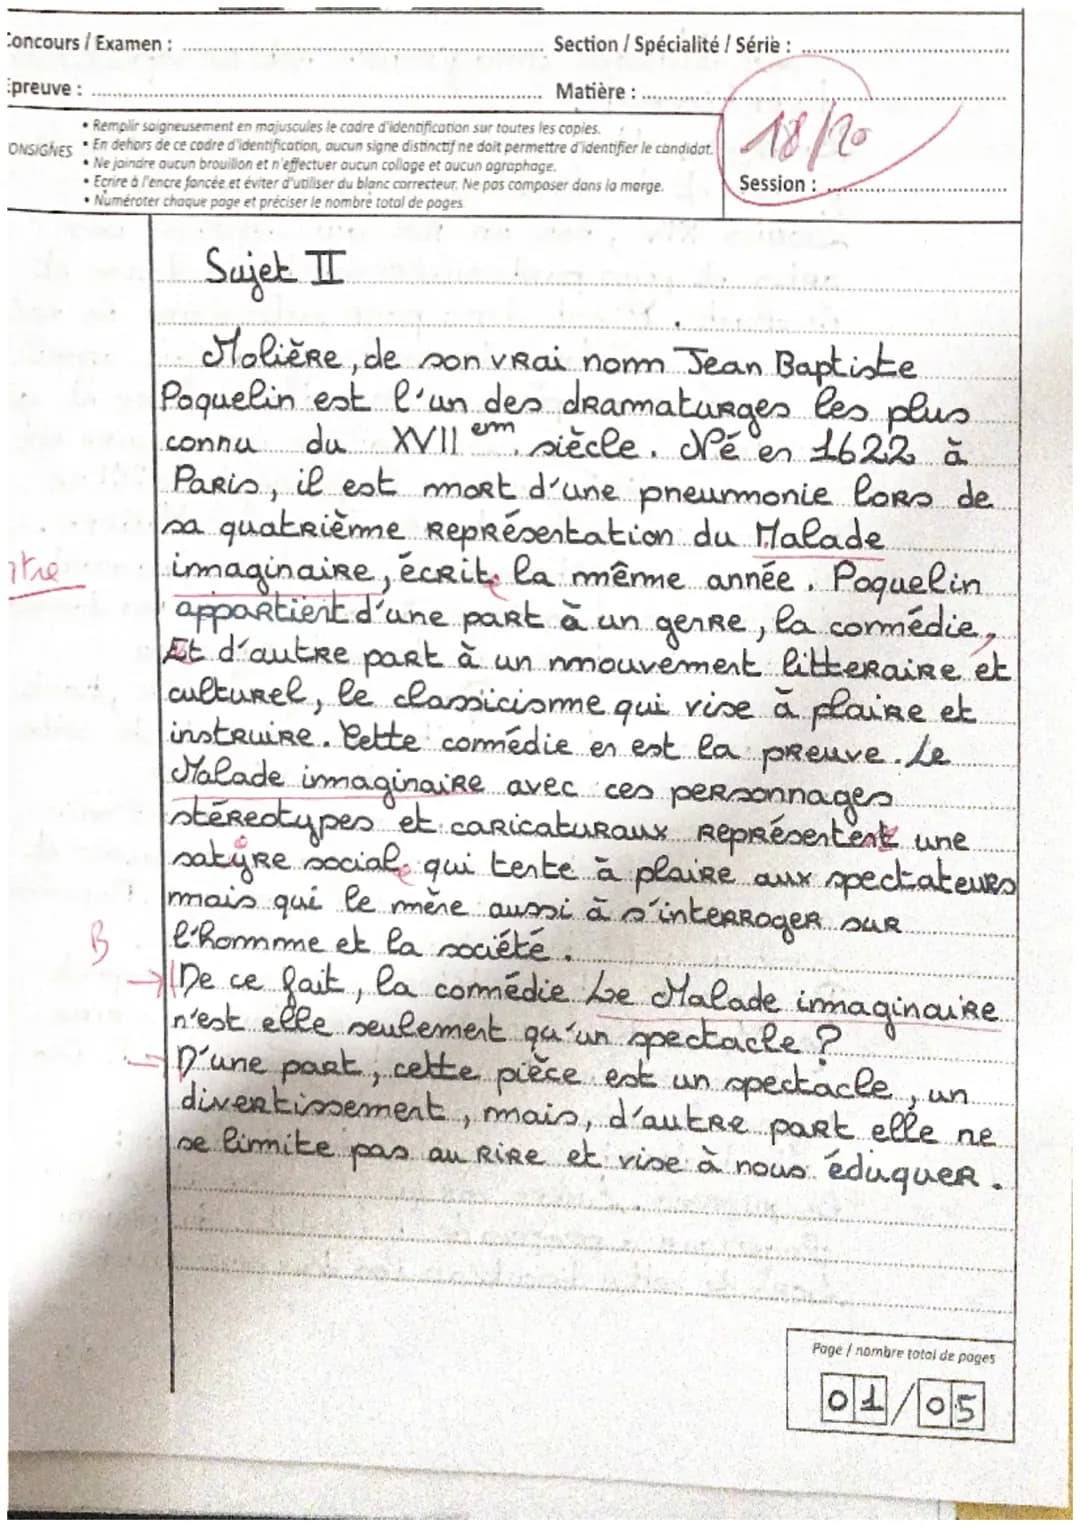 Concours / Examen : Section / Spécialité / Série :
Epreuve : Matière :
18/20
• Remplir soigneusement en majuscules le cadre d'identification sur toutes les copies.
ONSIGNES • En dehors de ce cadre d'identification, aucun signe distinctif ne doit permettre d'identifier le candidat.
• Ne joindre aucun brouillon et n'effectuer aucun collage et aucun agraphage.
• Ecrire à l'encre foncée et éviter d'utiliser du blanc correcteur. Ne pas composer dans la marge.
• Numéroter chaque page et préciser le nombre total de pages
Session :
Sujet II
Molière, de son vrai nom Jean Baptiste
Poquelin est l'un des dramaturges les plus
connu du XVII em siècle. Né en 1622 à
Paris, il est mort d'une pneumonie lors de
sa quatrième représentation du Malade
imaginaire, écrite la même année. Poquelin
appartient d'une part à un genre, la comédie,
Et d'autre part à un mouvement litteraire et
culturel, le classicisme qui vise à plaire et
instruire. Cette comédie en est la preuve. Le
Malade imaginaire avec ces personnages
stéreotypes et caricaturaux représentent une
satyre sociale qui tente à plaire aux spectateurs
mais qui le mène aussi à s'interroger sur
B
l'homme et la société.
De ce fait, la comédie Le Malade imaginaire
n'est elle seulement qu'un spectacle ?
D'une part, cette pièce est un spectacle, un
divertissement, mais, d'autre part elle ne
se limite pas au rire et vise à nous éduquer.
Page / nombre total de pages
01/05